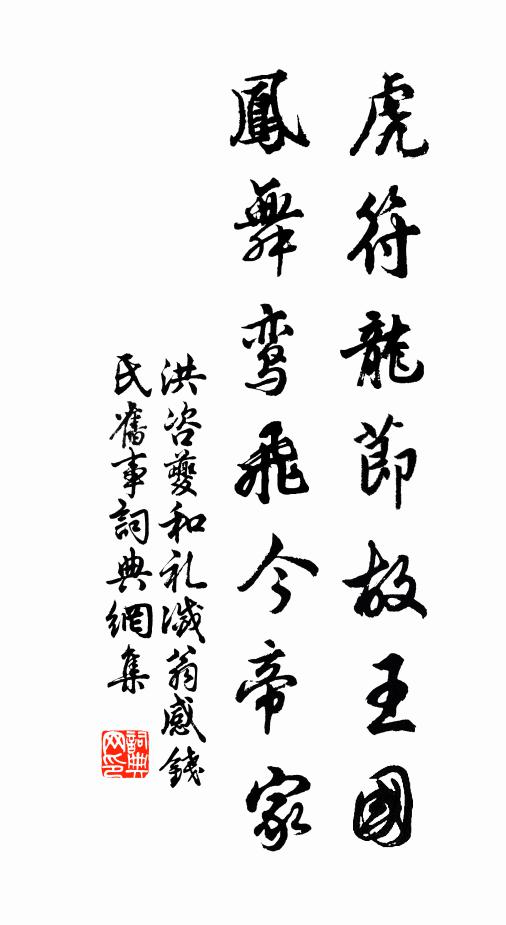 虎符龍節故王國
鳳舞鸾飛今帝家
洪咨夔和礼滅翁感錢
民舊事詞典網集
詞典网印